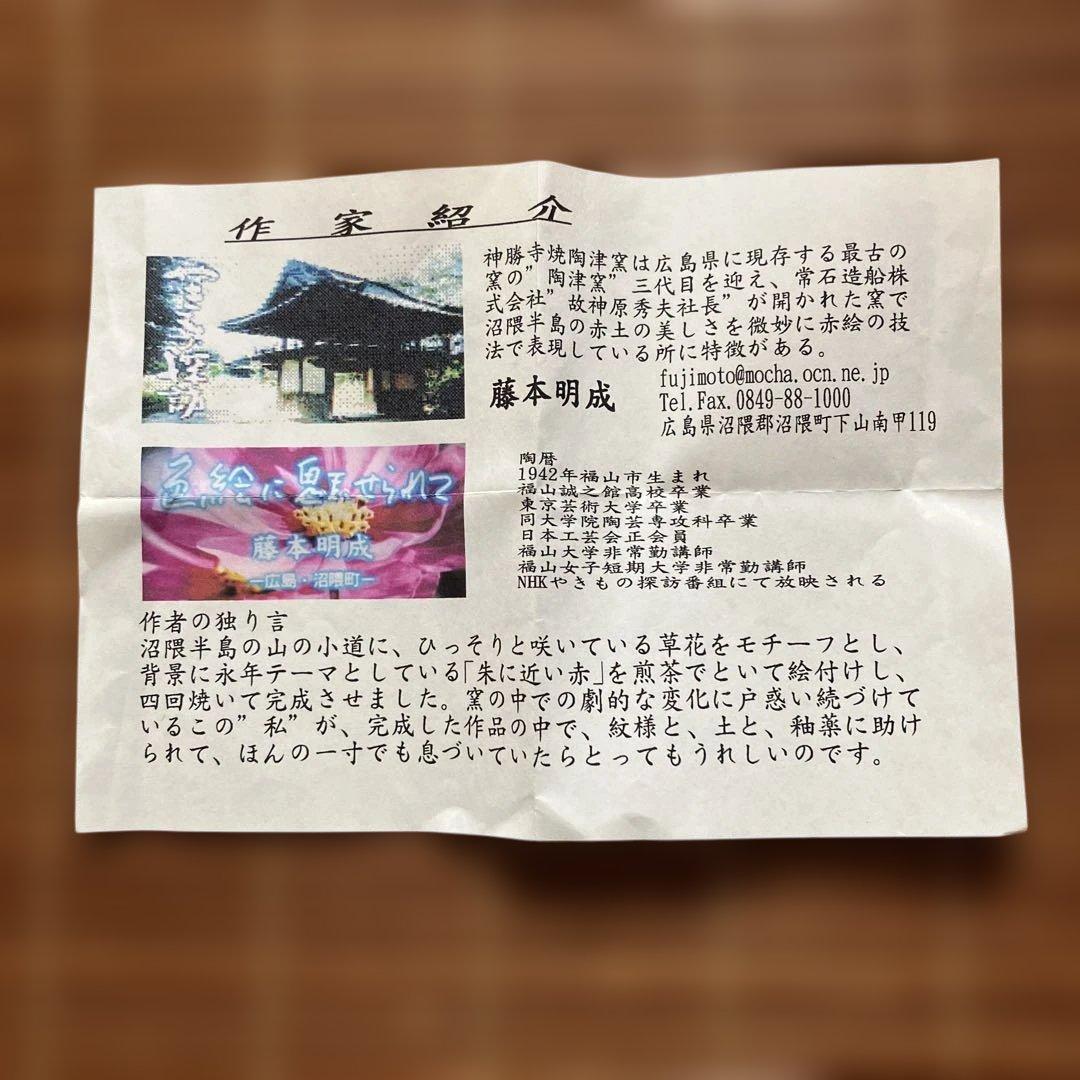 作家紹介
やきもの探訪
神勝寺焼陶津窯は広島県に現存する最古の
窯の”陶津窯”三代目を迎え、常石造船株
式会社”故神原秀夫社長”が開かれた窯で
沼隈半島の赤土の美しさを微妙に赤絵の技
法で表現している所に特徴がある。
藤本明成
fujimoto@mocha.ocn.ne.jp
Tel.Fax.0849-88-1000
広島県沼隈郡沼隈町下山南甲119
色絵に魅せられて
藤本明成
―広島・沼隈町―
陶暦
1942年福山市生まれ
福山誠之館高校卒業
東京芸術大学卒業
同大学院陶芸専攻科卒業
日本工芸会正会員
福山大学非常勤講師
福山女子短期大学非常勤講師
NHKやきもの探訪番組にて放映される
作者の独り言
沼隈半島の山の小道に、ひっそりと咲いている草花をモチーフとし、
背景に永年テーマとしている「朱に近い赤」を煎茶でといて絵付けし、
四回焼いて完成させました。窯の中での劇的な変化に戸惑い続づけて
いるこの”私”が、完成した作品の中で、紋様と、土と、釉薬に助け
られて、ほんの一寸でも息づいていたらとってもうれしいのです。